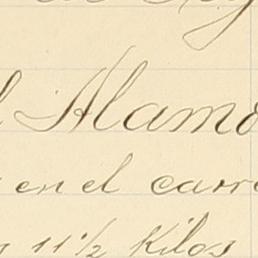 Alamo
en el carre
11½ Kilos